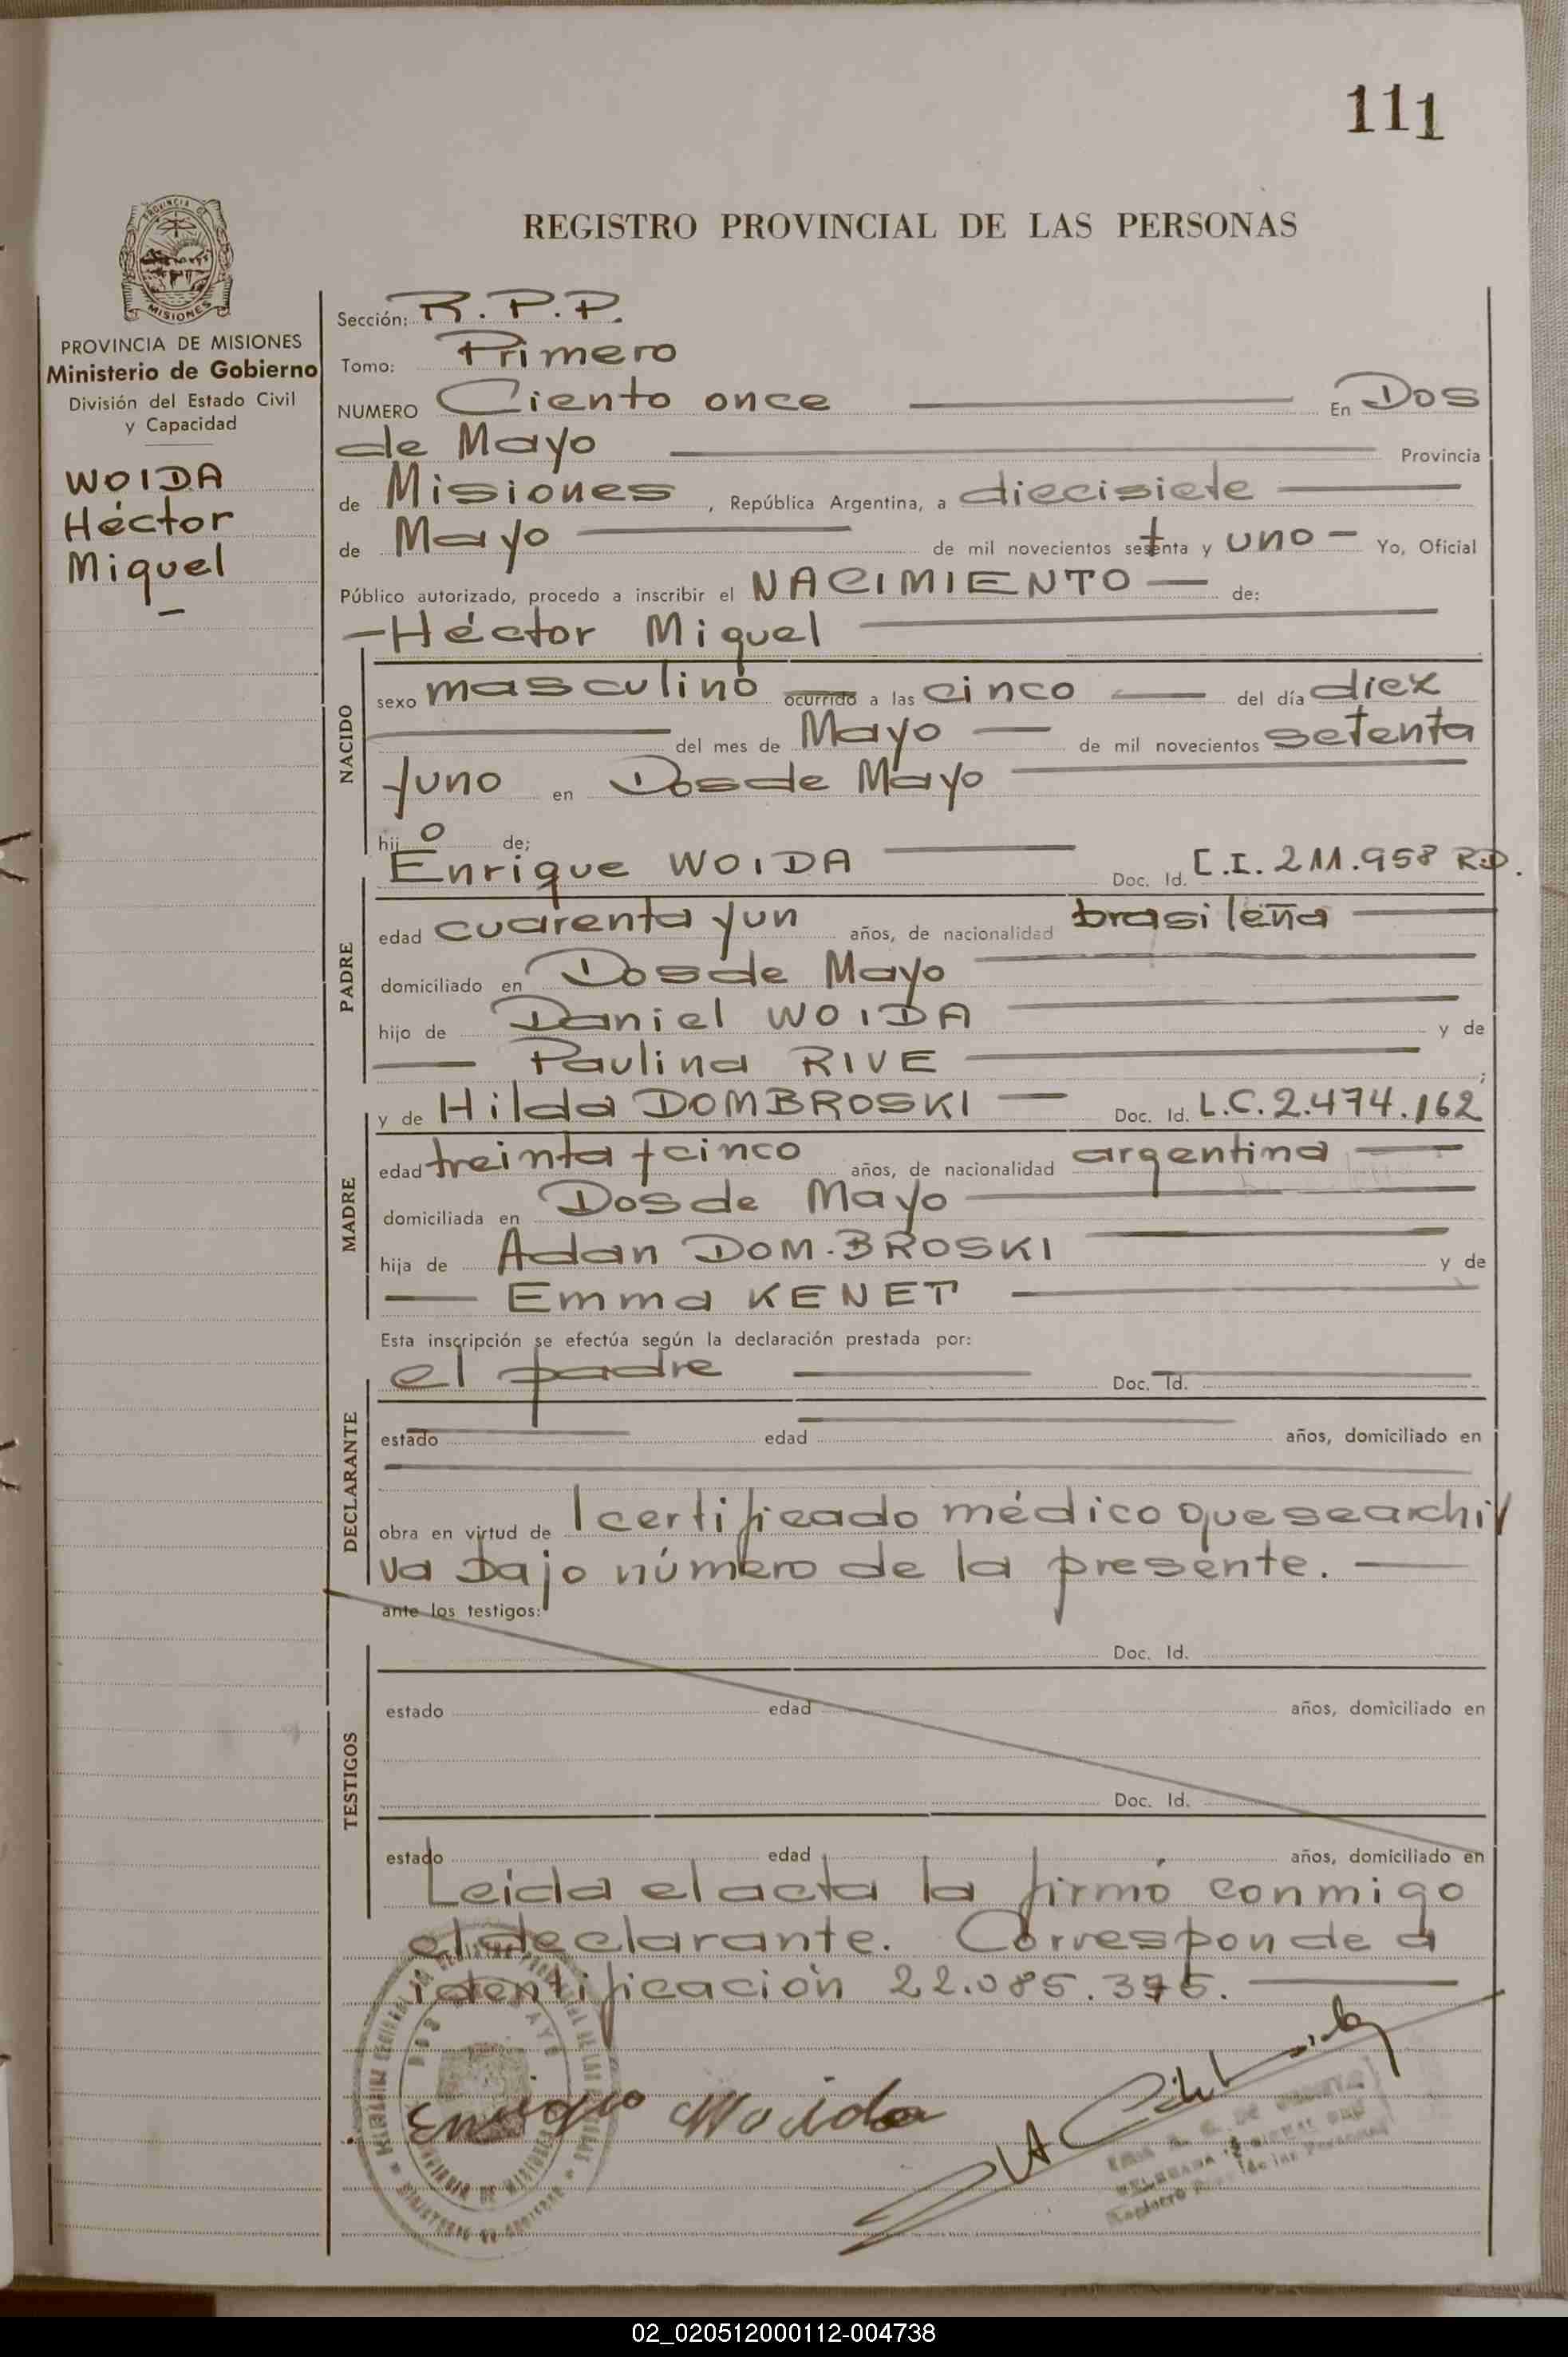 111
REGISTRO PROVINCIAL DE LAS PERSONAS
PROVINCIA DE
MISIONES
PROVINCIA DE MISIONES
Ministerio de Gobierno
División del Estado Civil
y Capacidad
WOIDA
Héctor
Miguel
Sección: R.P.P.
Tomo: Primero
NUMERO Ciento once En Dos
de Mayo Provincia
de Misiones, República Argentina, a diecisiete
de Mayo de mil novecientos setenta y uno - Yo, Oficial
Público autorizado, procedo a inscribir el NACIMIENTO de:
Héctor Miguel
NACIDO
sexo masculino ocurrido a las cinco del día diez
del mes de Mayo de mil novecientos setenta
yuno en Dos de Mayo
hijo de;
PADRE
Enrique WOIDA Doc. Id. C.I. 211.958 R.D.
edad cuarenta y un años, de nacionalidad brasileña
domiciliado en Dos de Mayo
hijo de Daniel WOIDA y de
Paulina RIVE ;
MADRE
y de Hilda DOMBROSKI Doc. Id. L.C. 2.474.162
edad treinta y cinco años, de nacionalidad argentina
domiciliada en Dos de Mayo
hija de Adan DOM.BROSKI y de
Emma KENET
Esta inscripción se efectúa según la declaración prestada por:
DECLARANTE
el padre Doc. Id.
estado edad años, domiciliado en
obra en virtud de l certificado médico que se archi
va bajo número de la presente.
ante los testigos:
TESTIGOS
Doc. Id.
estado edad años, domiciliado en
Doc. Id.
estado edad años, domiciliado en
Leida el acta la firmó conmigo
el declarante. Corresponde a
identificación 22.085.375.
Enrique Woida
02_020512000112-004738